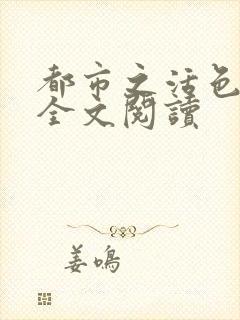 都市之活色
全文閱讀
姜鳴